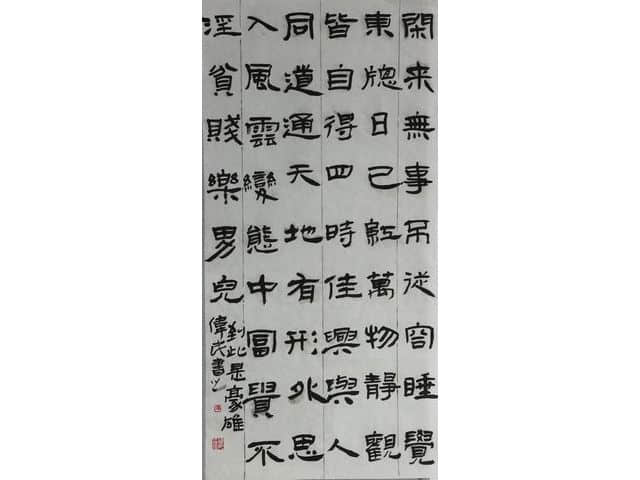 閑来無事不從容睡覺
東牕日已紅萬物靜觀
皆自得四時佳興與人
同道通天地有形外思
入風雲變態中冨貴不
淫貧賤樂男兒
到此是豪雄
偉民書